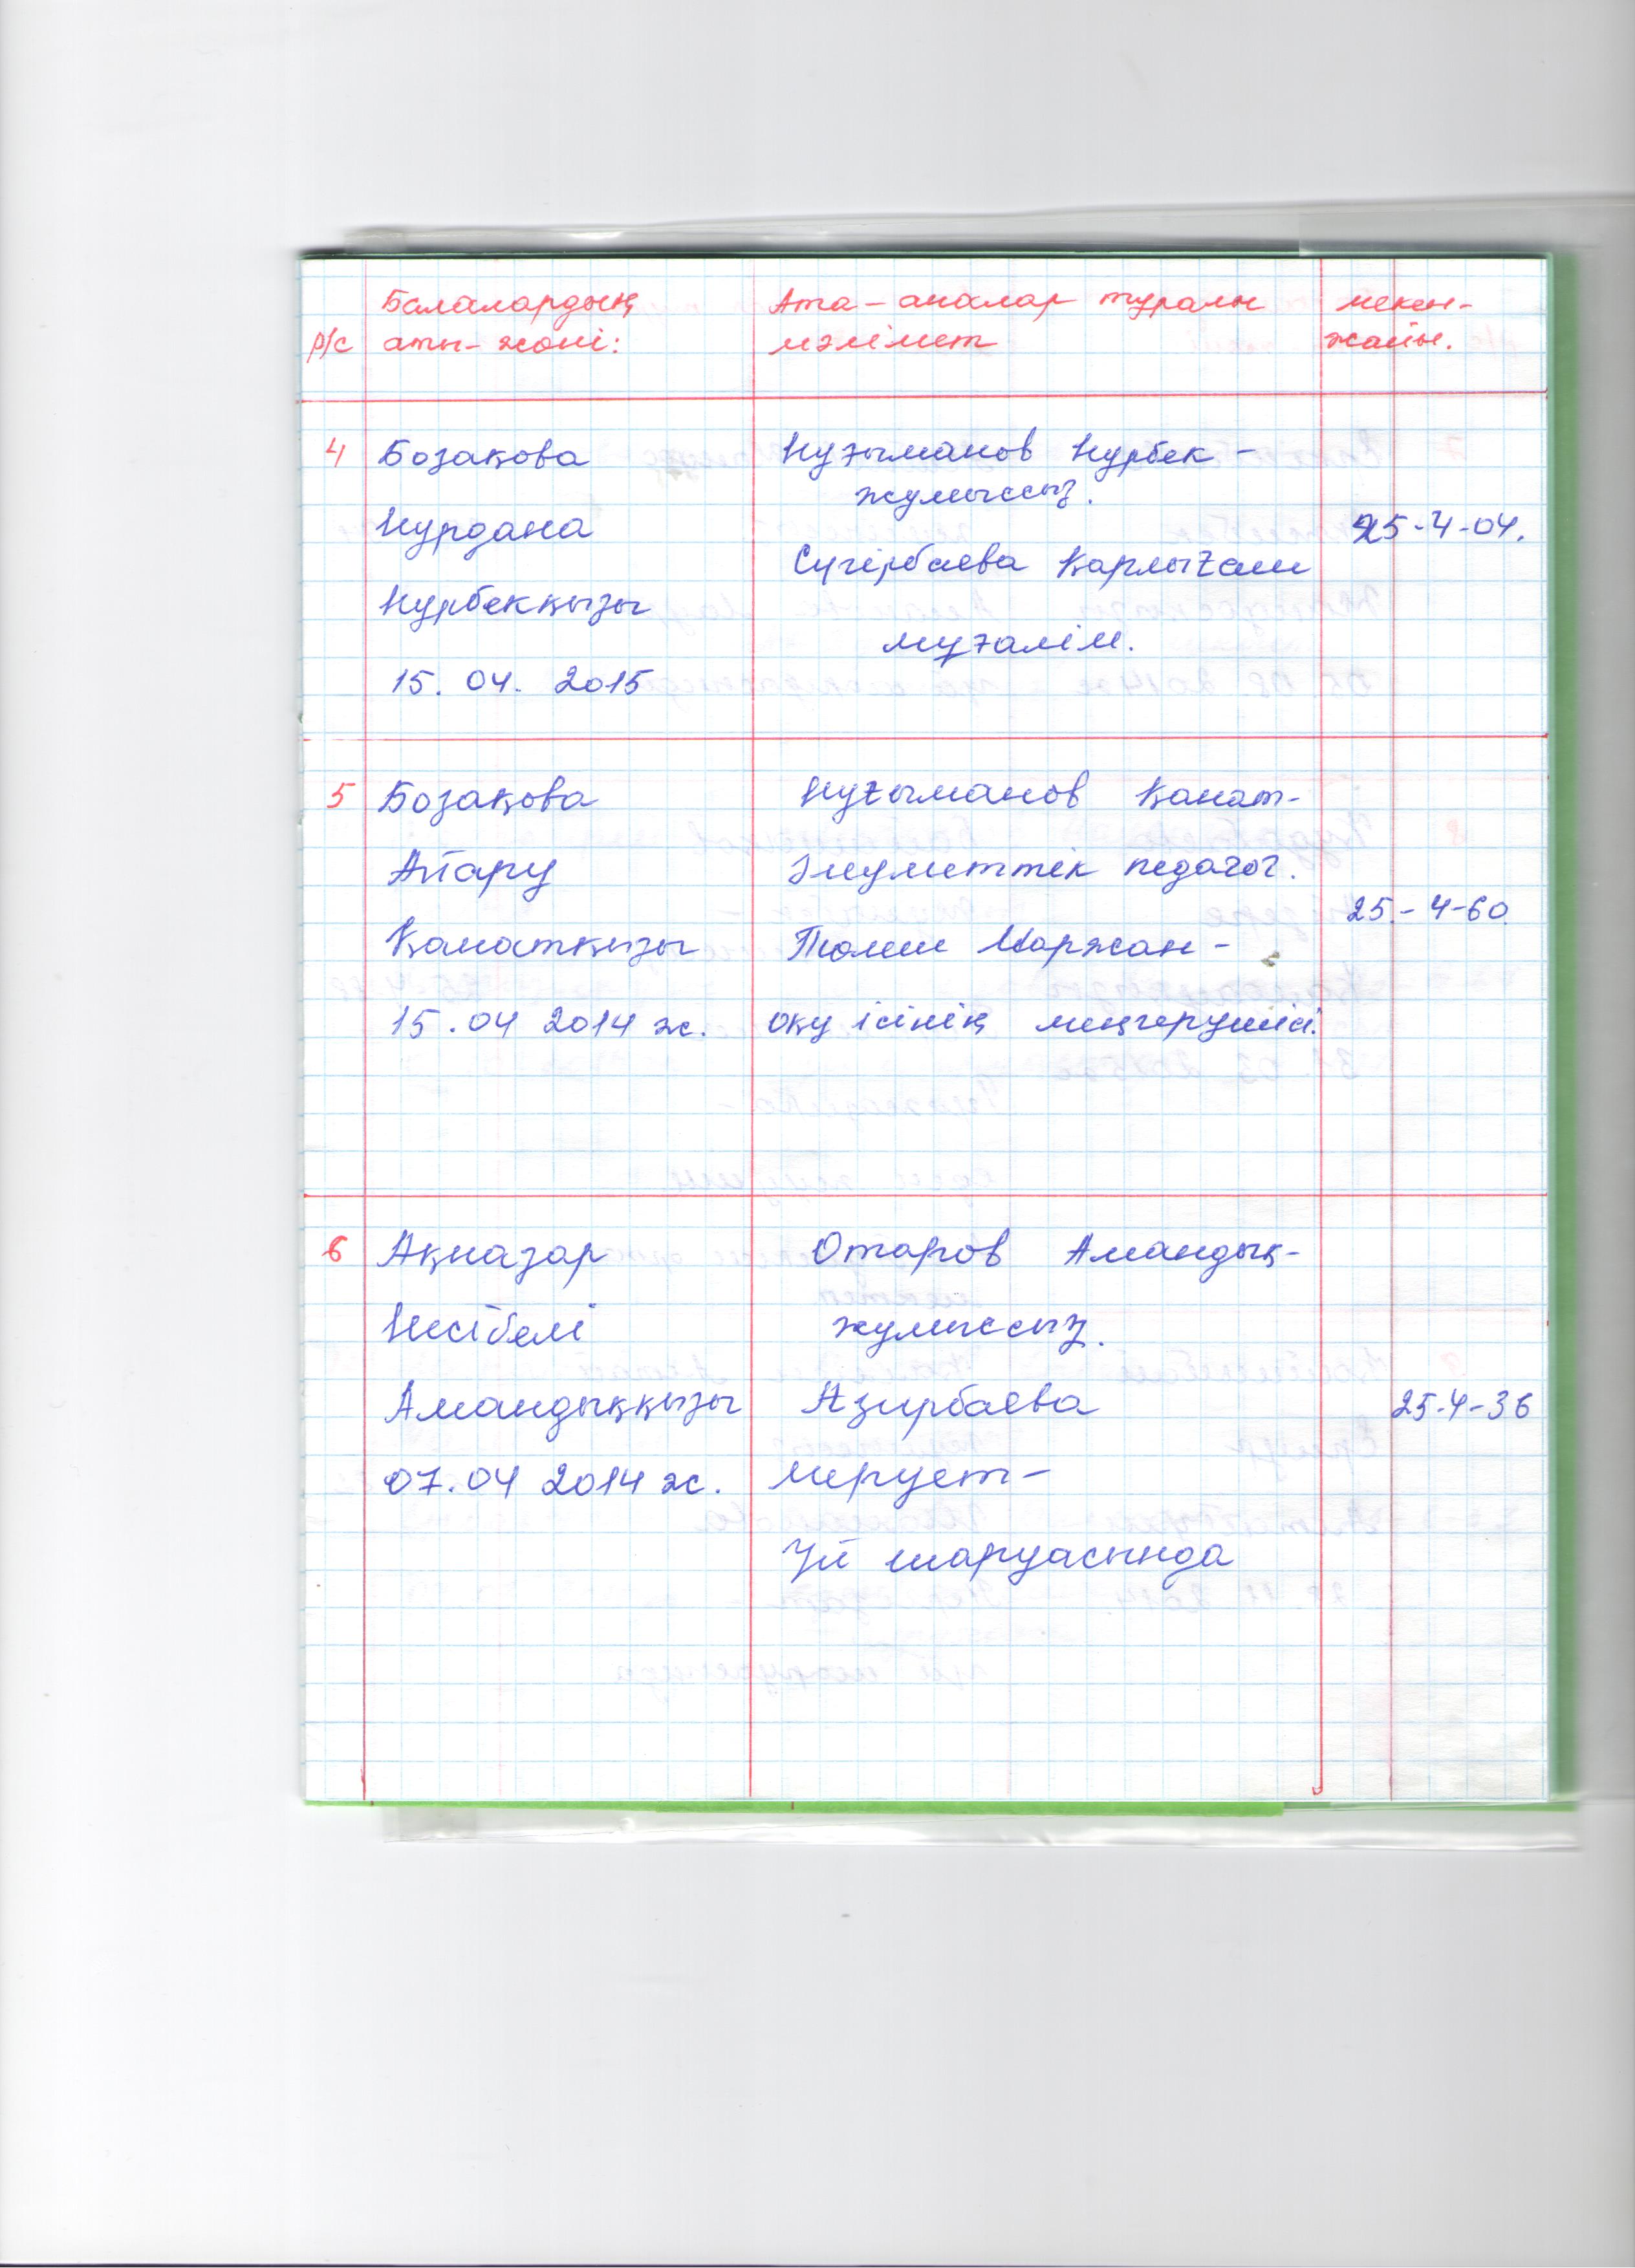 р/с
Балалардың
аты-жөні:
Ата-аналар туралы
мәлімет
мекен-
жайы.
4
Бозақова
Нұрдана
Нұрбекқызы
15. 04. 2015
Нұғыманов Нұрбек -
жұмыссыз.
Сүгірбаева Қарлығаш
мұғалім.
25-4-04.
5
Бозақова
Айару
Қанатқызы
15.04 2014 ж.
Нұғыманов Қанат-
Әлуметтік педагог.
Маржан -
оқу ісінің меңгерушісі.
25.-4-60
6
Ақназар
Несібелі
Амандыққызы
07.04 2014 ж.
Отаров Амандық-
жұмыссыз.
Азирбаева
Мерует-
Үй шаруасында
25-4-36